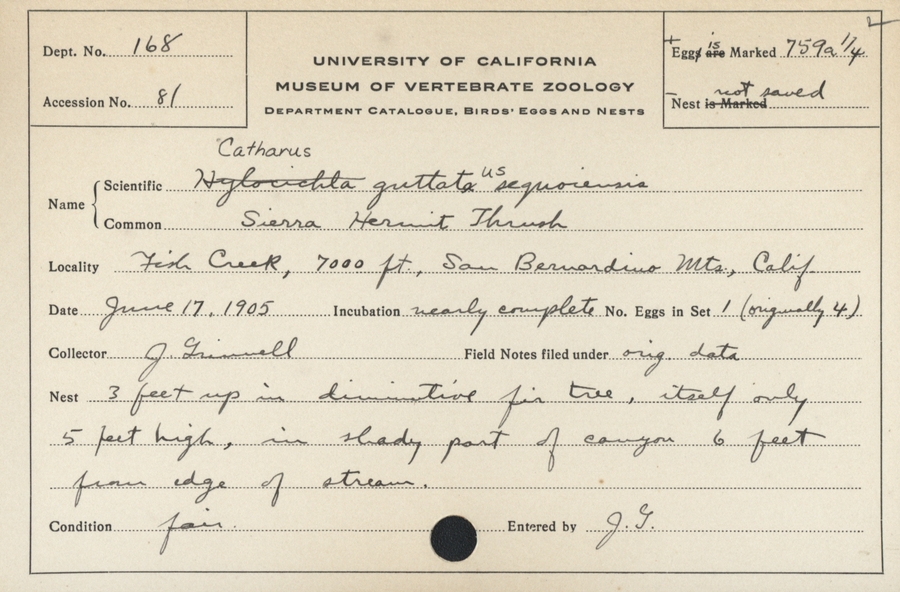 Dept. No. 168
Accession No. 81
UNIVERSITY OF CALIFORNIA
MUSEUM OF VERTEBRATE ZOOLOGY
DEPARTMENT CATALOGUE, BIRDS' EGGS AND NESTS
+ Eggs is are Marked 759a 1/4
– Nest is Marked not saved
Catharus
Name
Scientific Hylocichla guttata us sequoiensis
Common Sierra Hermit Thrush
Locality Fish Creek, 7000 ft., San Bernardino Mts., Calif.
Date June 17, 1905 Incubation nearly complete No. Eggs in Set 1 (originally 4)
Collector J. Grinnell Field Notes filed under orig. data
Nest 3 feet up in diminutive fir tree, itself only
5 feet high, in shady part of canyon 6 feet
from edge of stream.
Condition fair. Entered by J.G.